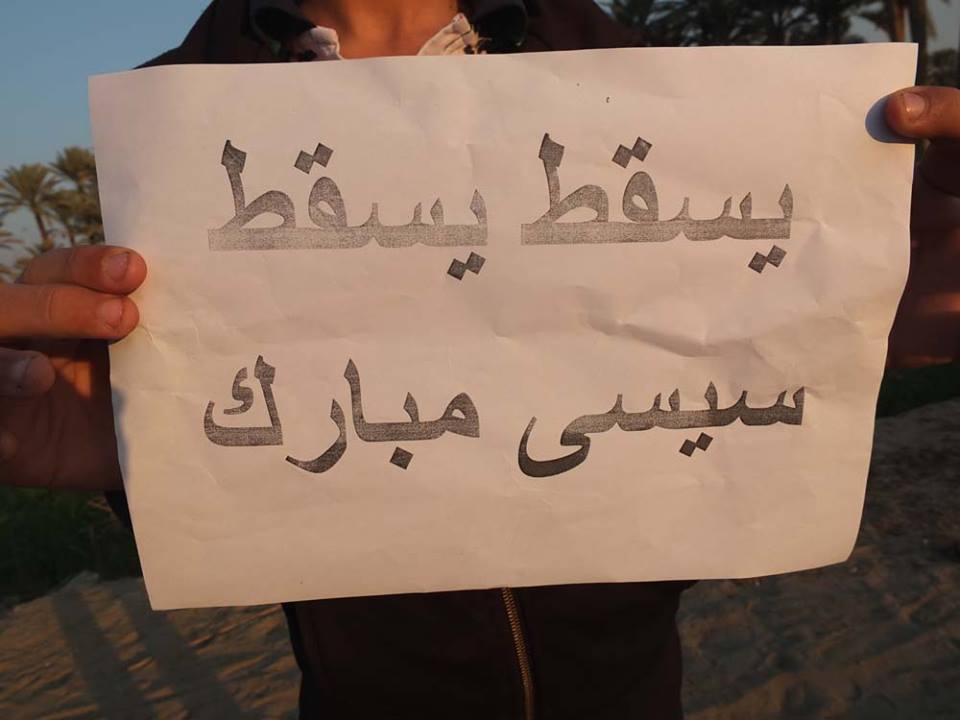 يسقط يسقط
سيسى مبارك